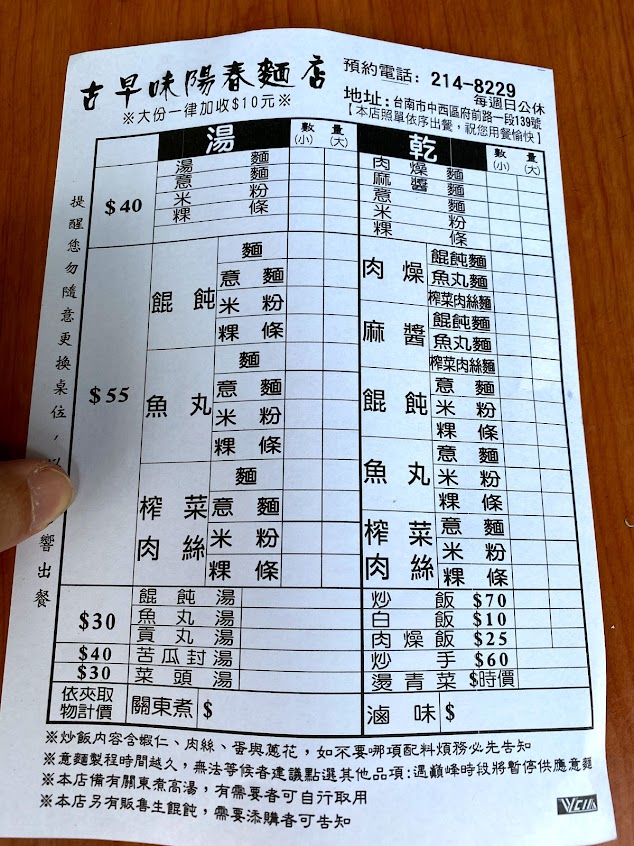 古早味陽春麵店
預約電話：214-8229
每週日公休
※大份一律加收$10元※
地址：台南市中西區府前路一段139號
【本店照單依序出餐，祝您用餐愉快】
湯 數(小) 量(大) 乾 數(小) 量(大)
$40
湯麵
意麵
米粉
粿條
肉燥麵
麻醬麵
意麵
米粉
粿條
$55
餛飩
麵
意麵
米粉
粿條
魚丸
麵
意麵
米粉
粿條
榨菜肉絲
麵
意麵
米粉
粿條
肉燥
餛飩麵
魚丸麵
榨菜肉絲麵
麻醬
餛飩麵
魚丸麵
榨菜肉絲麵
餛飩
意麵
米粉
粿條
魚丸
意麵
米粉
粿條
榨菜肉絲
意麵
米粉
粿條
$30
餛飩湯
魚丸湯
貢丸湯
$40 苦瓜封湯
$30 菜頭湯
炒飯 $70
白飯 $10
肉燥飯 $25
炒手 $60
燙青菜 $時價
依夾取物計價 關東煮 $
滷味 $
※炒飯內容含蝦仁、肉絲、蛋與蔥花，如不要哪項配料煩務必先告知
※意麵製程時間越久，無法等候者建議點選其他品項;遇巔峰時段將暫停供應意麵
※本店備有關東煮高湯，有需要者可自行取用
※本店另有販魯生餛飩，需要添購者可告知
提醒您勿隨意更換桌位，
響出餐